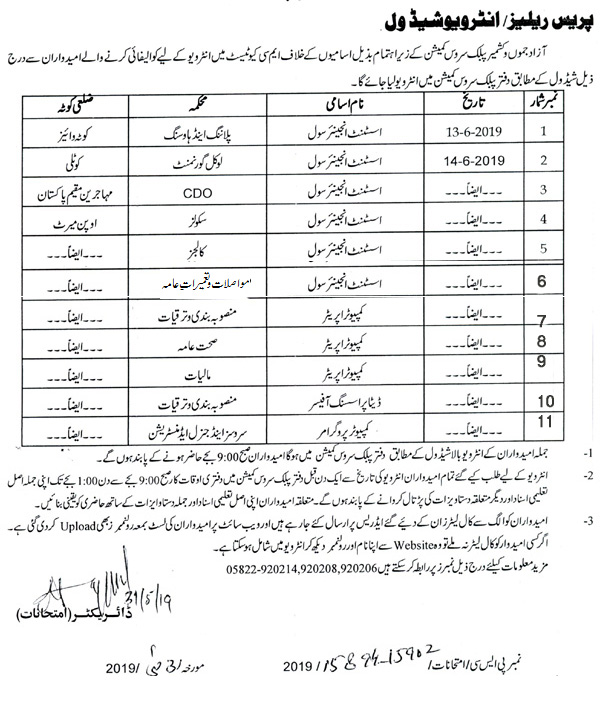 پریس ریلیز/انٹرویو شیڈول
آزاد جموں و کشمیر پبلک سروس کمیشن کے زیر اہتمام بذیل اسامیوں کے خلاف ایم سی کیو ٹیسٹ میں انٹرویو کے لیے کوالیفائی کرنے والے امیدواران سے درج
ذیل شیڈول کے مطابق دفتر پبلک سروس کمیشن میں انٹرویو لیا جائے گا۔
نمبر شمار تاریخ نام اسامی محکمہ ضلعی کوٹہ
1 13-6-2019 اسسٹنٹ انجینئر سول پلاننگ اینڈ ہاؤسنگ کوٹہ وائیز
2 14-6-2019 اسسٹنٹ انجینئر سول لوکل گورنمنٹ کوٹلی
3 ---ایضاً--- اسسٹنٹ انجینئر سول CDO مہاجرین مقیم پاکستان
4 ---ایضاً--- اسسٹنٹ انجینئر سول سکولز اوپن میرٹ
5 ---ایضاً--- اسسٹنٹ انجینئر سول کالجز ---ایضاً---
6 ---ایضاً--- اسسٹنٹ انجینئر سول مواصلات و تعمیرات عامہ ---ایضاً---
7 ---ایضاً--- کمپیوٹر آپریٹر منصوبہ بندی و ترقیات ---ایضاً---
8 ---ایضاً--- کمپیوٹر آپریٹر صحت عامہ ---ایضاً---
9 ---ایضاً--- کمپیوٹر آپریٹر مالیات ---ایضاً---
10 ---ایضاً--- ڈیٹا پراسسنگ آفیسر منصوبہ بندی و ترقیات ---ایضاً---
11 ---ایضاً--- کمپیوٹر پروگرامر سروسز اینڈ جنرل ایڈمنسٹریشن ---ایضاً---
1- جملہ امیدواران کے انٹرویو بالا شیڈول کے مطابق دفتر پبلک سروس کمیشن میں ہوگا امیدواران صبح 9:00 بجے حاضر ہونے کے پابند ہوں گے۔
2- انٹرویو کے لیے طلب کیے گئے تمام امیدواران انٹرویو کی تاریخ سے ایک دن قبل دفتر پبلک سروس کمیشن میں دفتری اوقات کار صبح 9:00 بجے سے دن 1:00 بجے تک اپنی جملہ اصل
تعلیمی اسناد اور دیگر متعلقہ دستاویزات کی پڑتال کروانے کے پابند ہوں گے۔ متعلقہ امیدواران اپنی اصل تعلیمی اسناد اور جملہ دستاویزات کے ساتھ حاضری کو یقینی بنائیں۔
3- امیدواران کو الگ سے کال لیٹرز ان کے دیے گئے ایڈریس پر ارسال کئے جا رہے ہیں اور ویب سائٹ پر امیدواران کی لسٹ بمعہ رولنمبرز بھی Upload کر دی گئی ہے۔
اگر کسی امیدوار کو کال لیٹر نہ ملے تو وہ Website سے اپنا نام اور رولنمبر دیکھ کر انٹرویو میں شامل ہو سکتا ہے۔
مزید معلومات کیلئے درج ذیل نمبرز پر رابطہ کر سکتے ہیں 05822-920214,920208,920206
31/5/19
ڈائریکٹر (امتحانات)
نمبر پی ایس سی/امتحانات/15894-15902/2019
مورخہ 31 مئی /2019